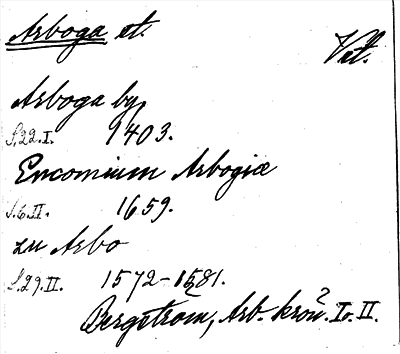 Arboga et.
Vet.
Arboga by,
S.22.I. 1403.
Encomium Arbogiæ
S.6.II. 1659.
zu Arbo
S.29.II. 1572-1581.
Bergström, Arb. krön. I. II.